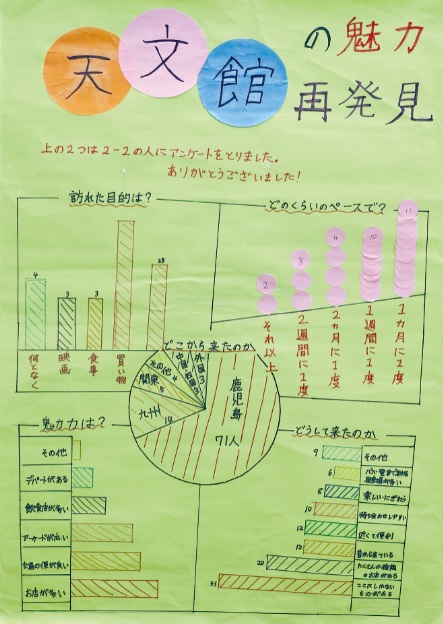 天文館の魅力
再発見
上の2つは2-2の人にアンケートをとりました。
ありがとうございました！
訪れた目的は？
4
3
3
何となく
映画
食事
買い物
どのくらいのペースで？
2
3
4
10
11
それ以上
2週間に1度
2カ月に1度
1週間に1度
1カ月に1度
どこから来たのか
鹿児島
71人
九州
14
関東
その他
外国
3
魅力は？
その他
デパートがある
飲食店が多い
アーケードが広い
交通の便が良い
お店が多い
どうして来たのか
9
その他
6
8
楽しい・にぎわう
10
待ち合わせしやすい
12
近くて便利
12
昔から来ている
20
たくさんの種類のお店がある
33
ここにしかないものがある